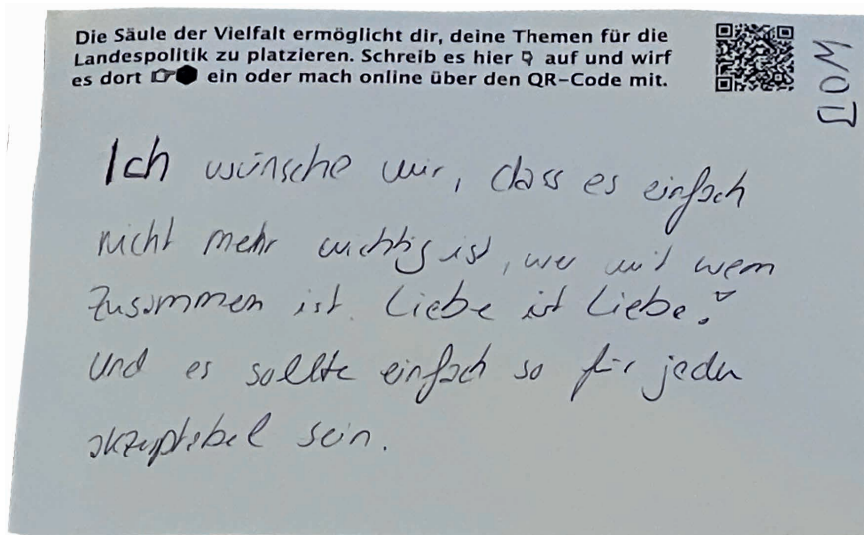 Die Säule der Vielfalt ermöglicht dir, deine Themen für die
Landespolitik zu platzieren. Schreib es hier auf und wirf
es dort ein oder mach online über den QR-Code mit.
WOJ
Ich wünsche mir, dass es einfach
nicht mehr wichtig ist, wer mit wem
zusammen ist. Liebe ist Liebe!
Und es sollte einfach so für jeden
akzeptabel sein.